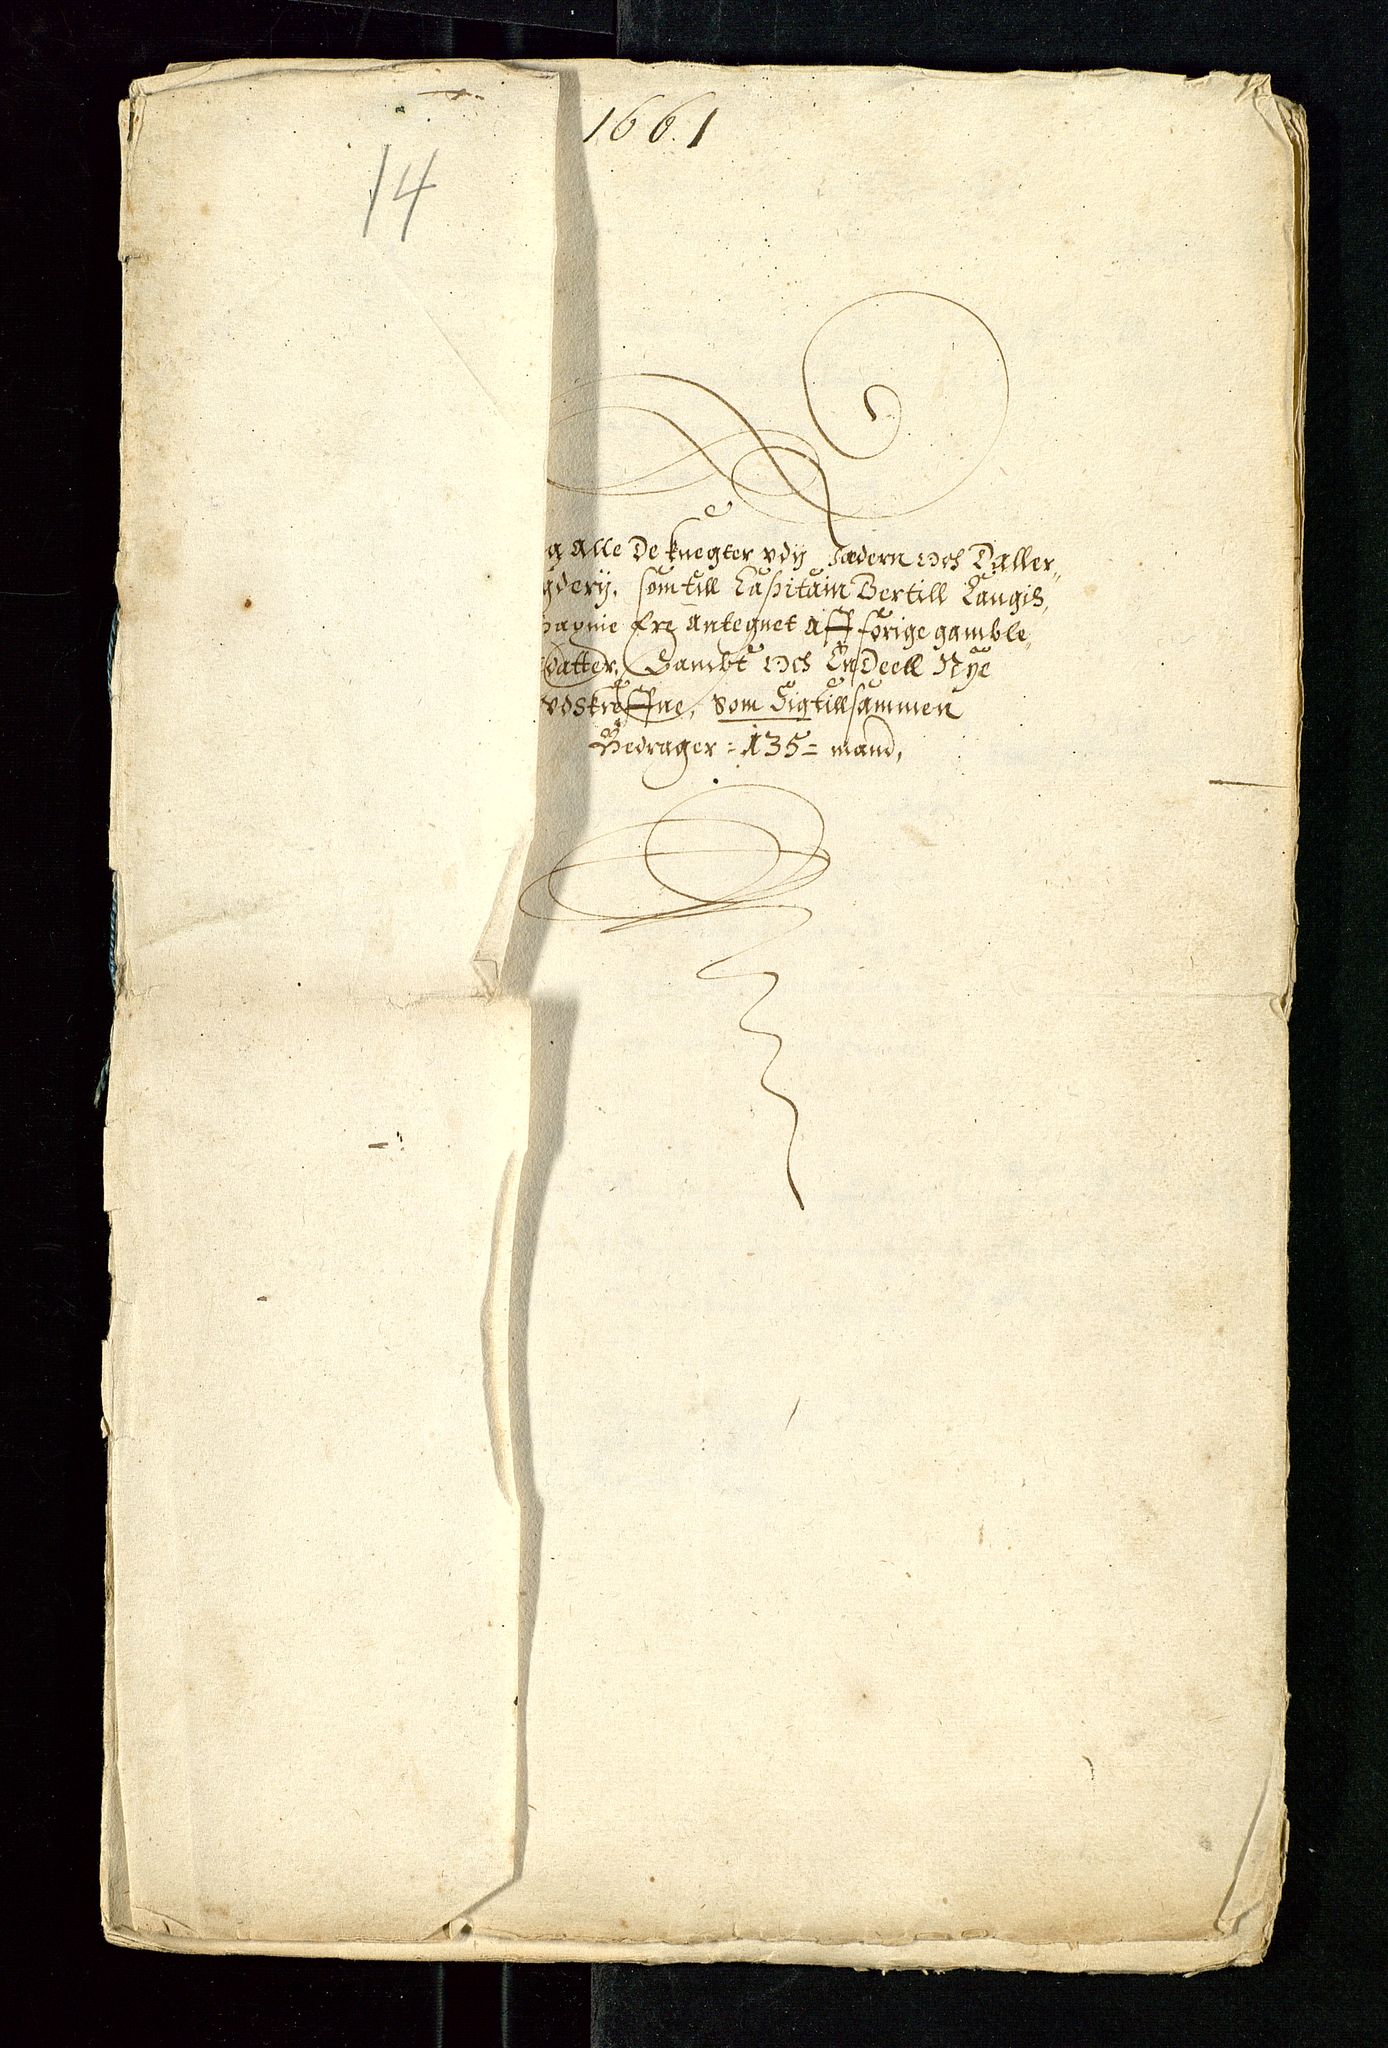 1661
14
g Alle De knegter vdj Jædern och Daller„
gderij, som till Capitain Bertill Laugis„
pagnie Ere Antegnet Aff förige gamble„
datter, Sambt och En Deell Nÿe
vdskreffne, som Sig till sammen
Bedrager =135= mand,